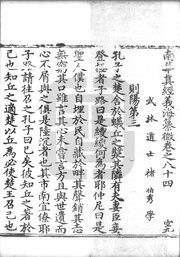 南華真經義海纂微卷之八十四
宮九
武林道士褚伯秀學
則陽第三
孔子之楚舍於蟻丘之漿其隣有夫妻臣妾
登極者子路曰是稯稯何為者耶仲尼曰是
聖人僕也是自埋於民自藏於畔其聲銷其志
無窮其口雖言其心未嘗言方且與世違而
心不屑與之俱是陸沉者也是其市南宜僚
耶子路請往召之孔子曰已矣彼知丘之著於
己也知丘之適楚以丘為必使楚王召己也